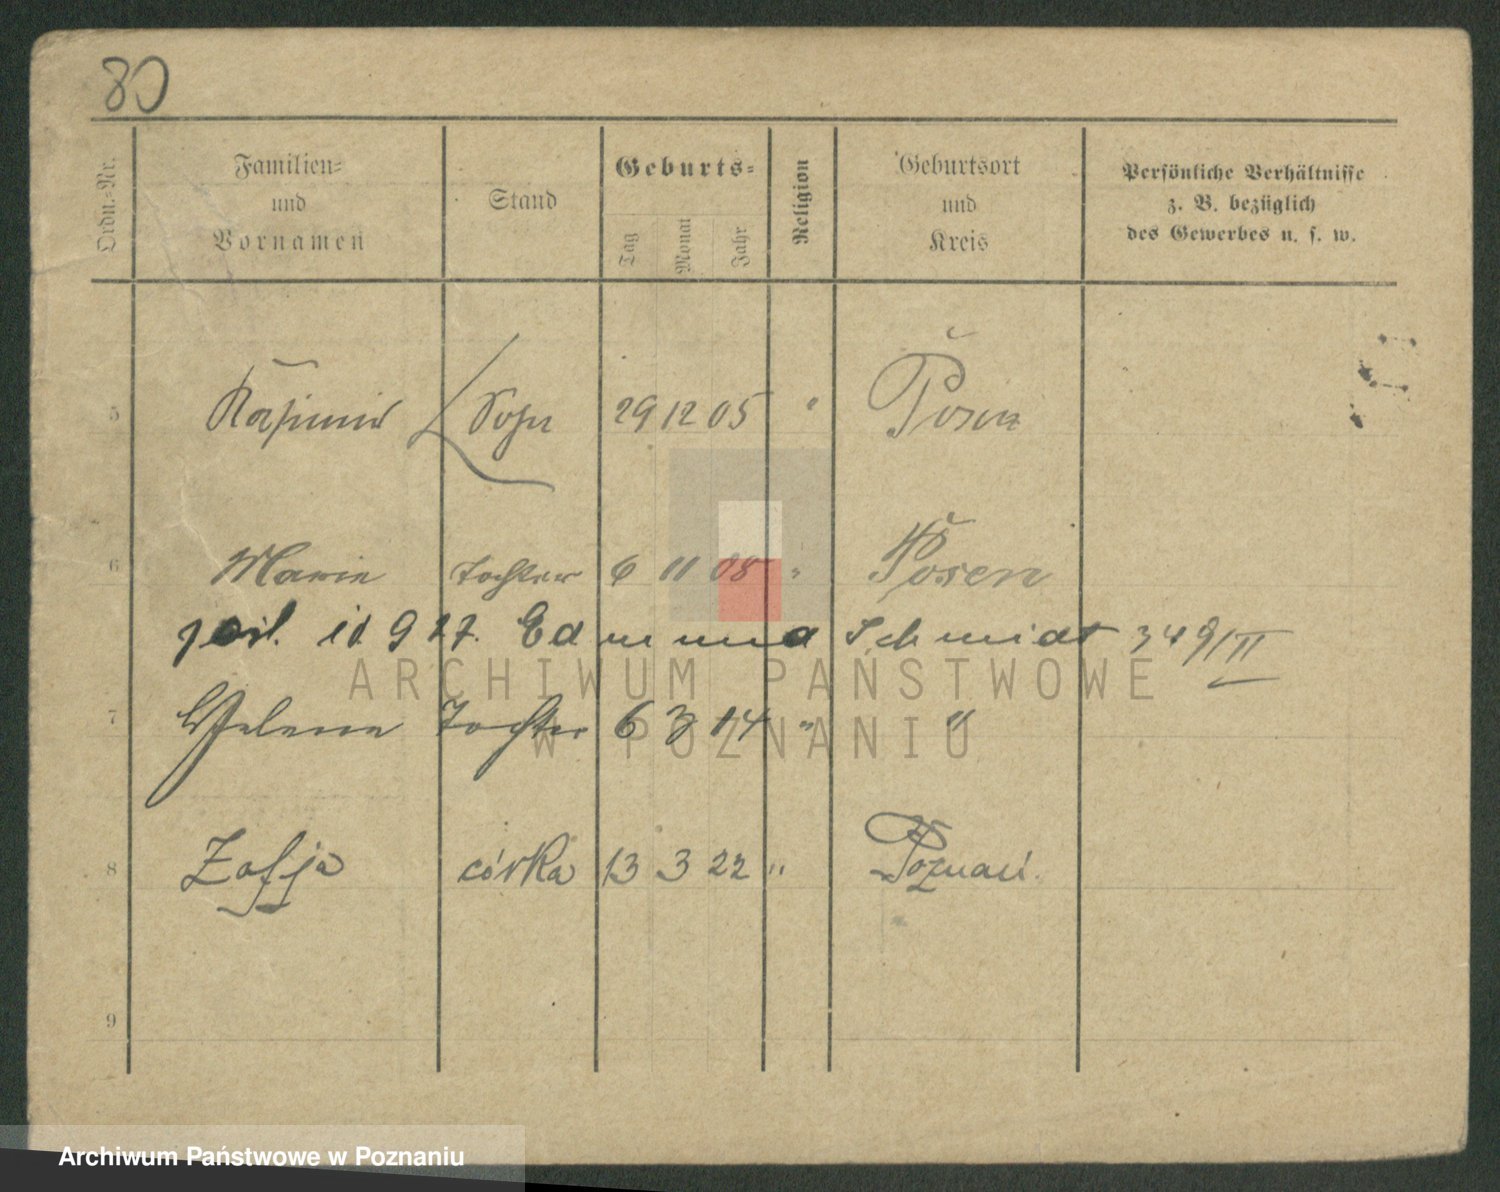 80
Ordn.-Nr.
Familien- und Vornamen
Stand
Geburts-
Tag Monat Jahr
Religion
Geburtsort und Kreis
Persönliche Verhältnisse z. B. bezüglich des Gewerbes u. s. w.
5 Kasimir Sohn 29 12 05 " Posen
6 Marie Tochter 6 11 08 " Posen
1927. Edmund Schmidt 349/II
ARCHIWUM PAŃSTWOWE
7 Helene Tochter 6 3 14 " "
W POZNANIU
8 Zofja córka 13 3 22 " Poznań.
9
Archiwum Państwowe w Poznaniu